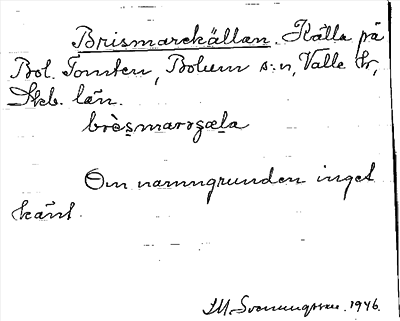 Brismarekällan. Källa på
Bol. Tomten, Bolum s:n, Valle hr,
Skb. län.
Om namngrunden inget
känt.
M. Svenungsson. 1946.